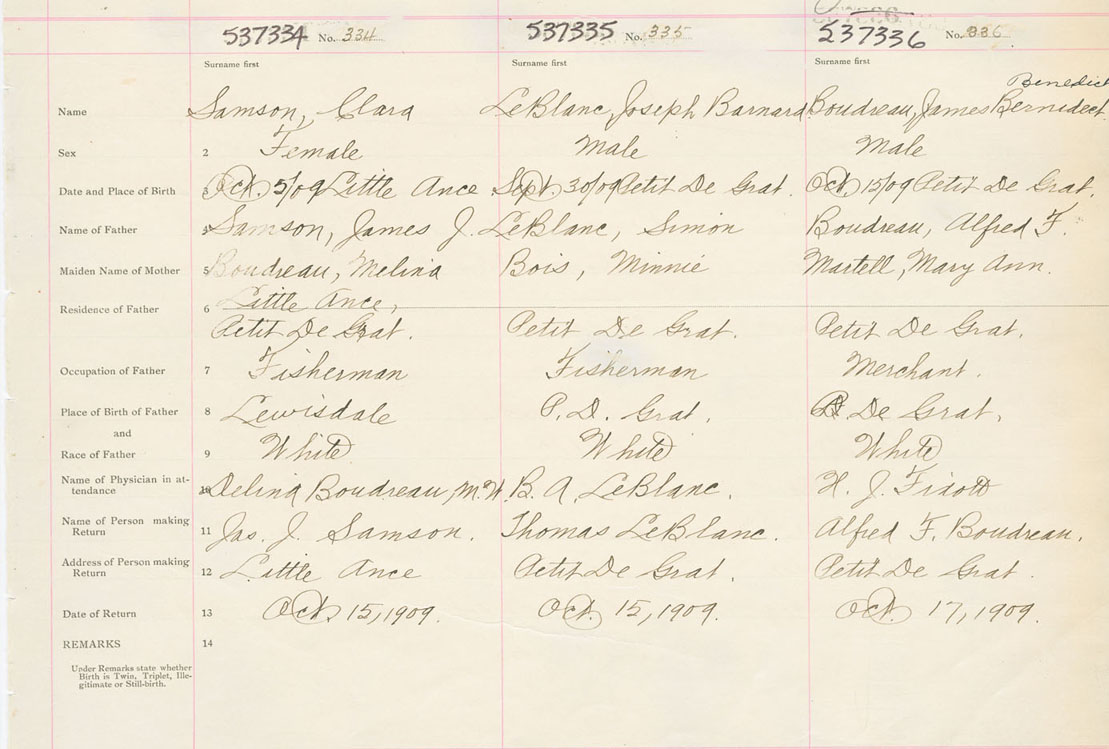 537334 No. 334 537335 No. 335 537336 No. 336
Surname first Surname first Surname first
Benedict
Name Samson, Clara LeBlanc, Joseph Barnard Boudreau, James Bernidect
Sex 2 Female Male Male
Date and Place of Birth 3 Oct. 5/09 Little Ance Sept. 30/09 Petit De Grat. Oct. 15/09 Petit De Grat.
Name of Father 4 Samson, James J. LeBlanc, Simon Boudreau, Alfred F.
Maiden Name of Mother 5 Boudreau, Melina Bois, Minnie Martell, Mary Ann.
Residence of Father 6 Little Ance,
Petit De Grat. Petit De Grat. Petit De Grat.
Occupation of Father 7 Fisherman Fisherman Merchant.
Place of Birth of Father 8 Lewisdale P. D. Grat. P. De Grat.
and
Race of Father 9 White White White
Name of Physician in at-
tendance 10 Delina Boudreau, M.W B. A. LeBlanc. H. J.
Name of Person making
Return 11 Jas. J. Samson. Thomas LeBlanc. Alfred F. Boudreau.
Address of Person making
Return 12 Little Ance Petit De Grat. Petit De Grat.
Date of Return 13 Oct. 15, 1909. Oct. 15, 1909. Oct. 17, 1909.
REMARKS 14
Under Remarks state whether
Birth is Twin, Triplet, Ille-
gitimate or Still-birth.